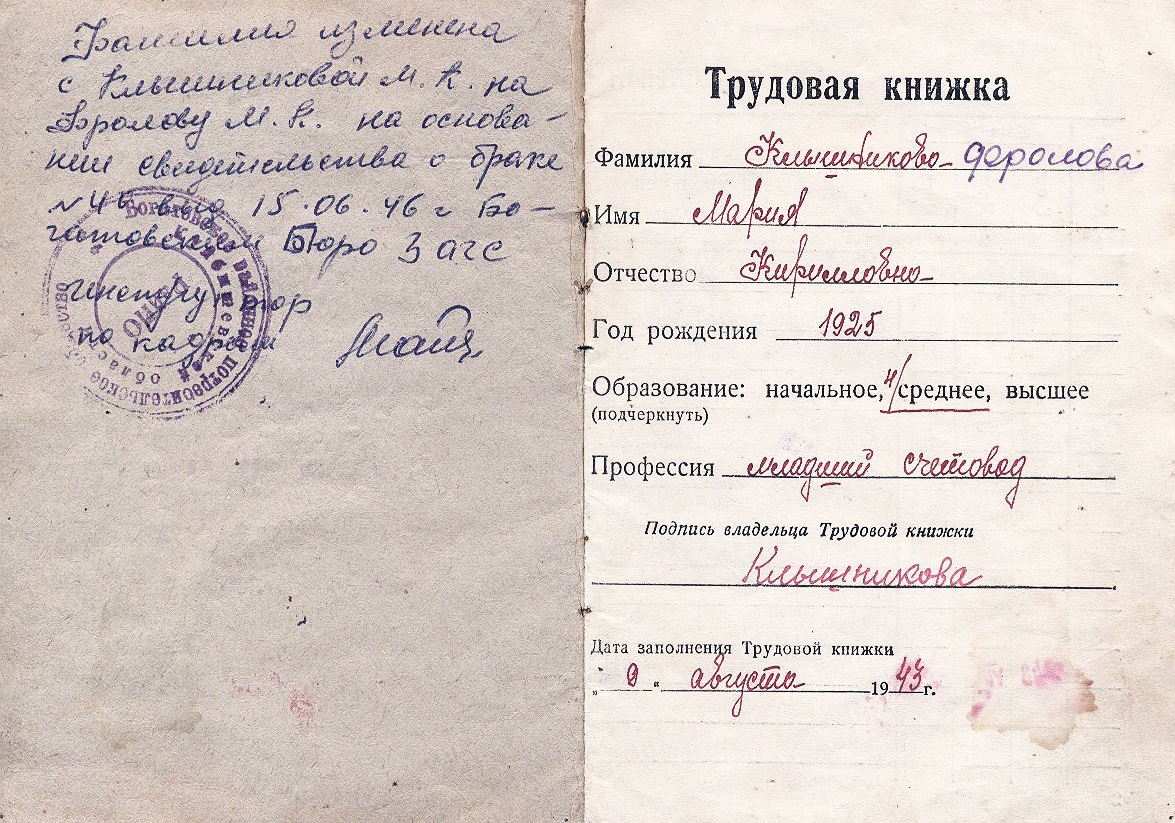 Фамилия изменена
с Клышниковой М. К. на
Фролову М. К. на основа-
нии свидетельства о браке
№ 46 выд 15.06.46 г Бо-
гатовским Бюро Загс
Инспектор
по кадрам
Богатовское районное потребительское общество
Куйбышевской области
Трудовая книжка
Фамилия Клышникова Фролова
Имя Мария
Отчество Кирилловна
Год рождения 1925
Образование: начальное, н/среднее, высшее
(подчеркнуть)
Профессия младший счетовод
Подпись владельца Трудовой книжки
Клышникова
Дата заполнения Трудовой книжки
„ 9 “ августа 1943 г.